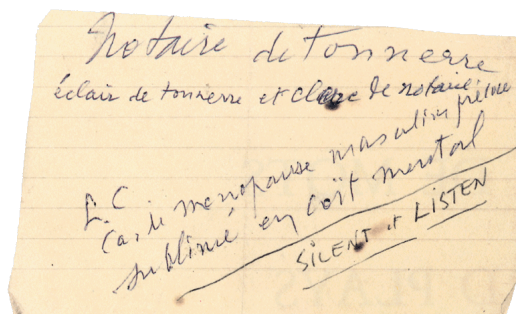 Notaire de tonnerre
éclair de tonnerre et clerc de notaire
L.C
Cas de ménopause masculin précoce
sublimée en coït mental
SILENT et LISTEN
D PLATS